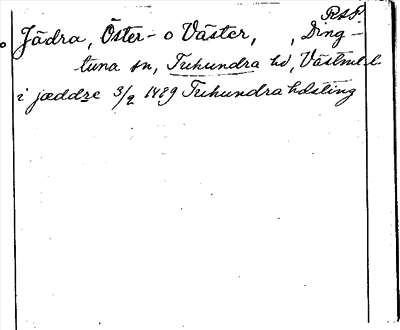 RSP.
Jädra, Öster- o Väster, , Ding-
tuna sn, Tuhundra hd, Västml. l.
i jæddre 3/2 1489 Tuhundra hdsting